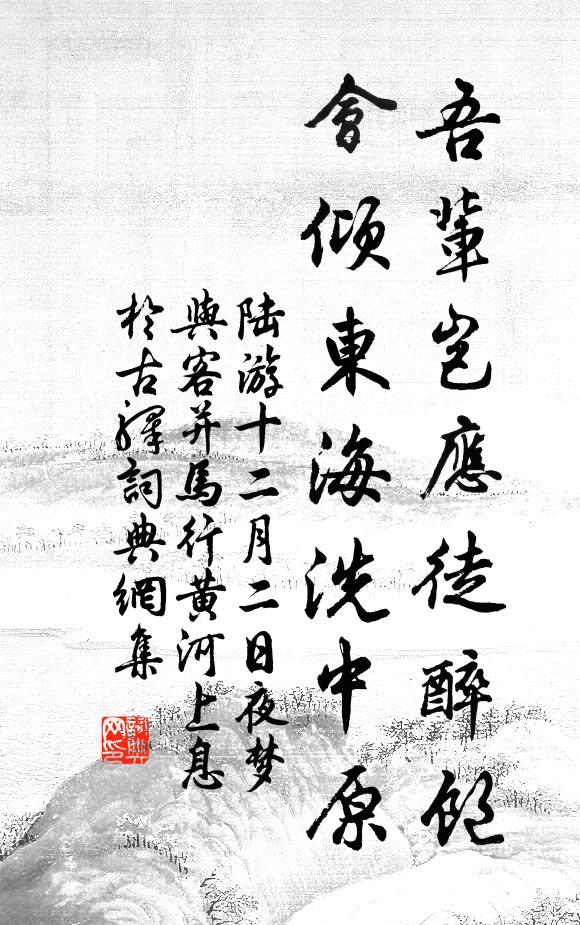 吾輩豈應徒醉飽
會傾東海洗中原
陆游十二月二日夜梦
與客并馬行黄河上息
於古譯詞典網集
詞典
网印